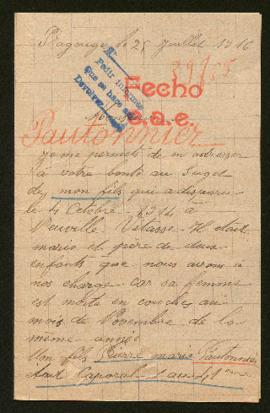 le 28 Juillet 1916
Pedir informes
que se hace
Devuelve
29755
Fecho
s.a.e.
Pautonnier
je me permets de m adresser
à votre bonté au Sujet
de mon fils qui a disparu
le 4 Octobre 1914 à
Neuville Vitasse. Il était
marié et père de deux
enfants que nous avons à
nos charge car sa femme
est morte en couches au
mois de Novembre de la
même année
Mon fils Pierre marie Pautonnier
Caporal